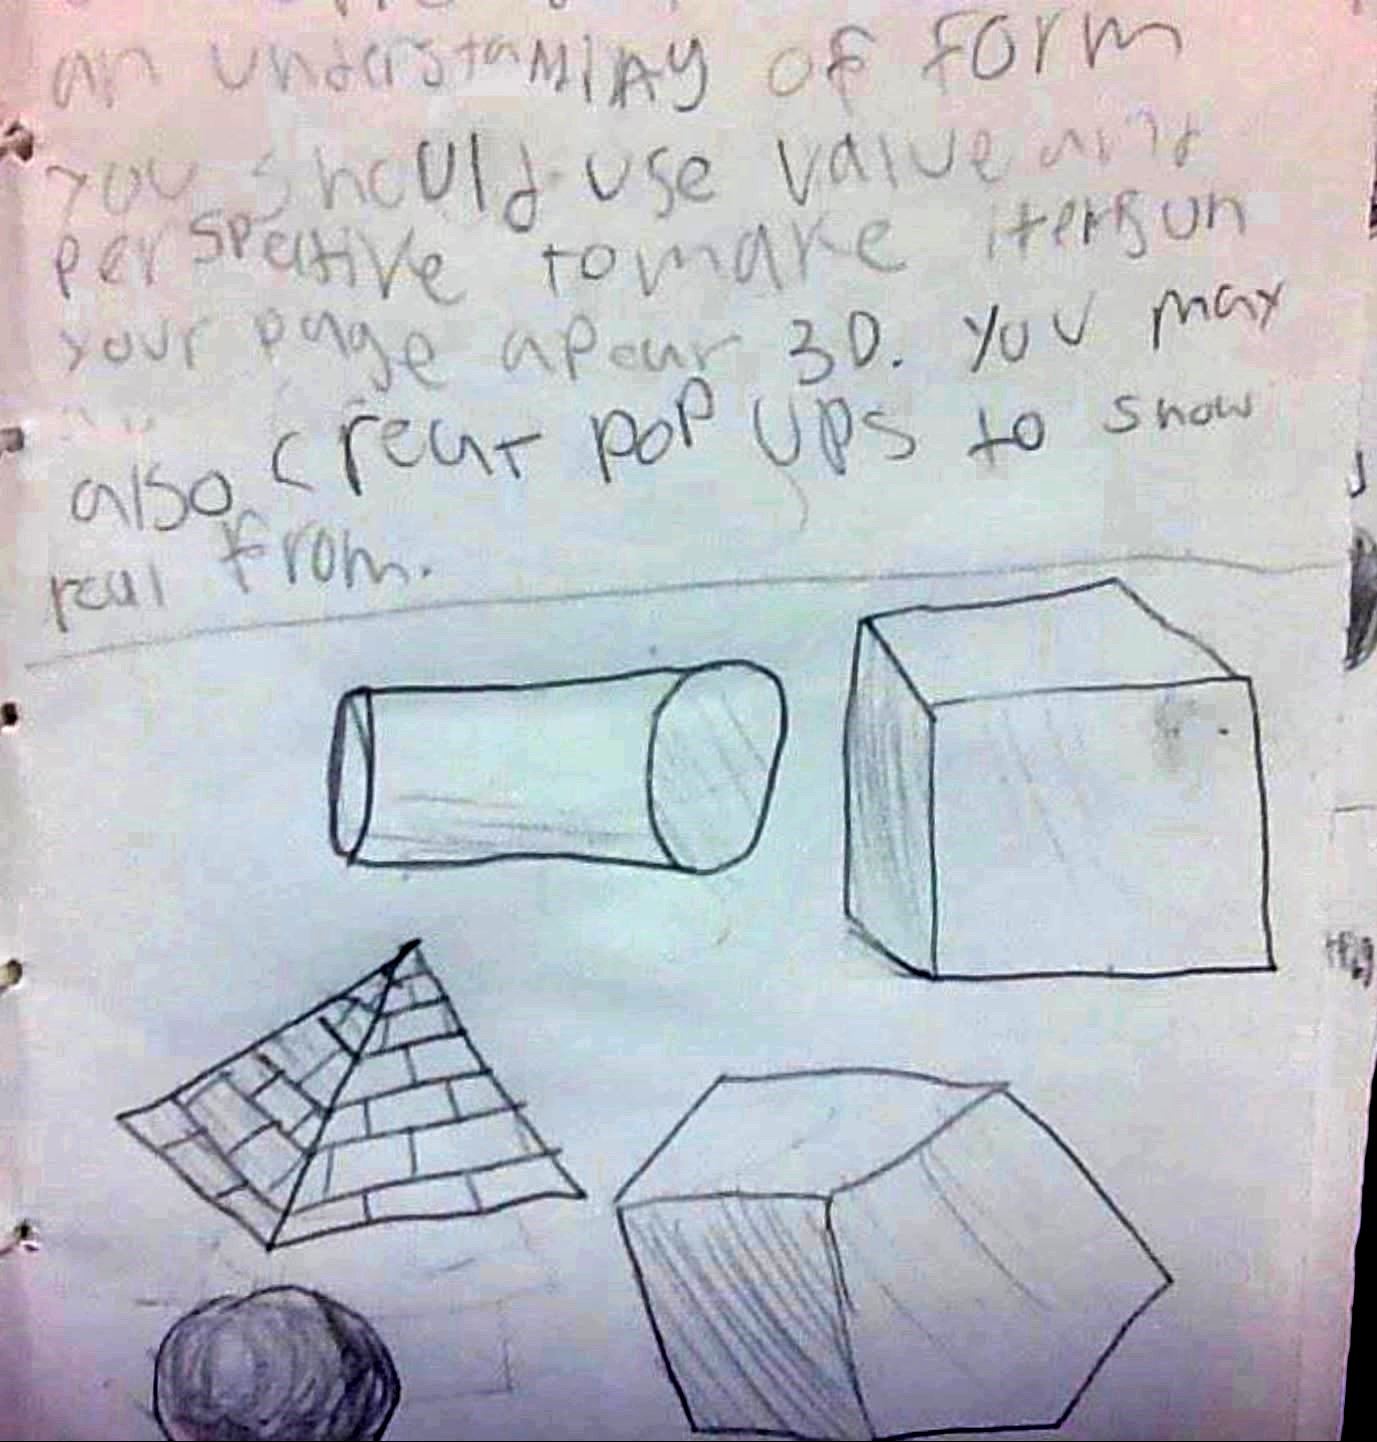 an understaminy of form
you should use value and
perspective to make items un
your page apear 3D. you may
also creat pop ups to show
real from.